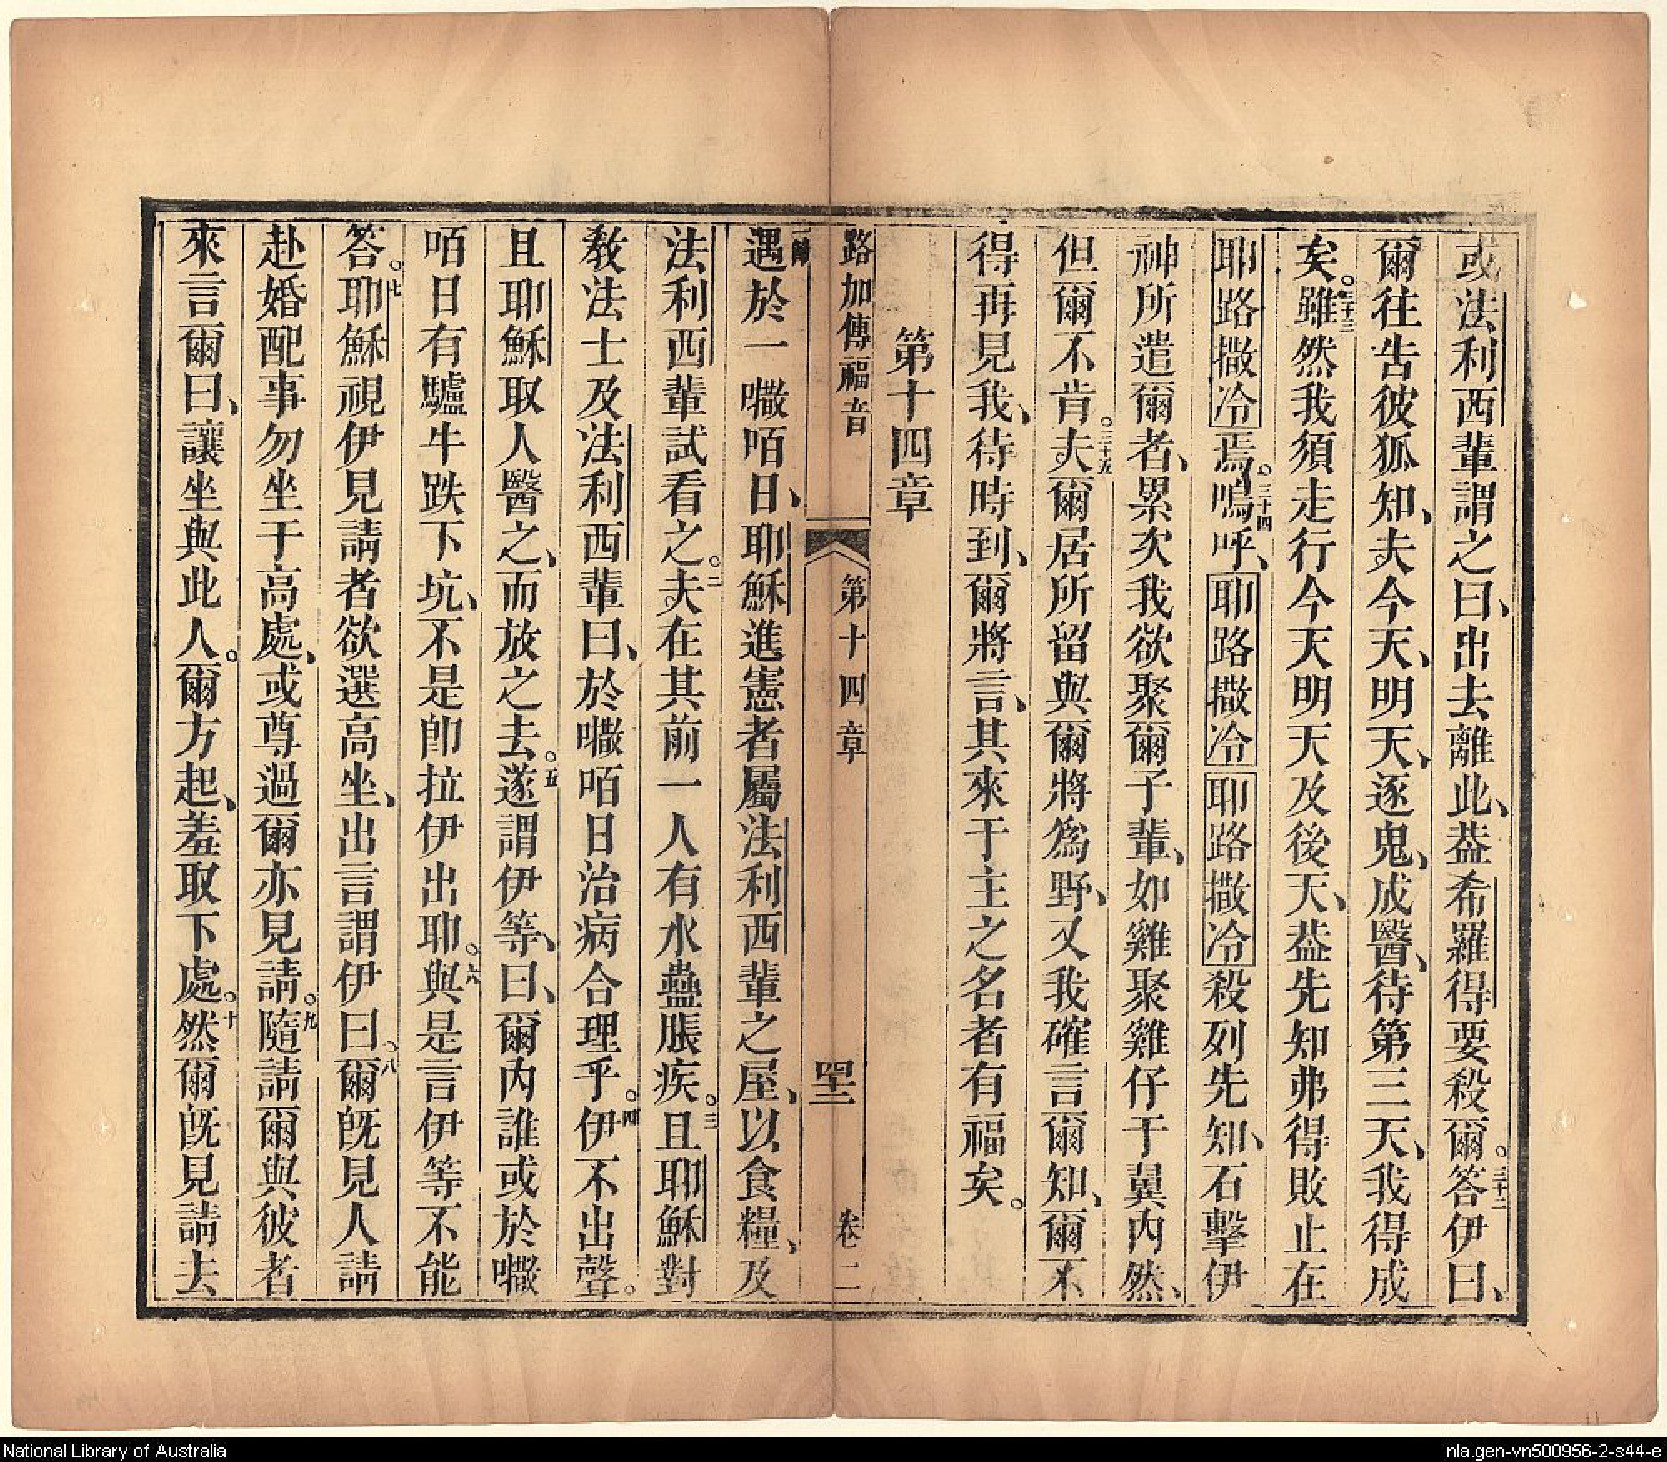 或法利西輩謂之曰、出去離此、葢希羅得要殺爾。三十二答伊曰、
爾往告彼狐知、夫今天、明天、逐鬼、成醫、待第三天、我得成
矣。三十三雖然我須走行今天明天及後天、葢先知弗得敗止在
耶路撒冷焉。三十四嗚呼、耶路撒冷耶路撒冷殺列先知、石擊伊
神所遣爾者、累次我欲聚爾子輩、如雞聚雞仔于翼內然、
但爾不肯。三十五夫爾居所留與爾將為野、又我確言爾知、爾不
得再見我、待時到、爾將言、其來于主之名者有福矣。
第十四章
路加傳福音
第十四章
四十二
卷二
一節遇於一囕咟日、耶穌進憲者屬法利西輩之屋、以食糧、及
法利西輩試看之。二夫在其前一人有水蠱脹疾。三且耶穌對
敎法士及法利西輩曰、於囕咟日治病合理乎。四伊不出聲。
且耶穌取人醫之、而放之去。五遂謂伊等、曰、爾內誰或於囕
咟日有驢牛跌下坑、不是卽拉伊出耶。六與是言伊等不能
答。七耶穌視伊見請者欲選高坐、出言謂伊曰。八爾旣見人請
赴婚配事勿坐于高處、或尊過爾亦見請。九隨請爾與彼者
來言爾曰、讓坐與此人。爾方起、羞取下處。十然爾旣見請去
National Library of Australia
nla.gen-vn500956-2-s44-e